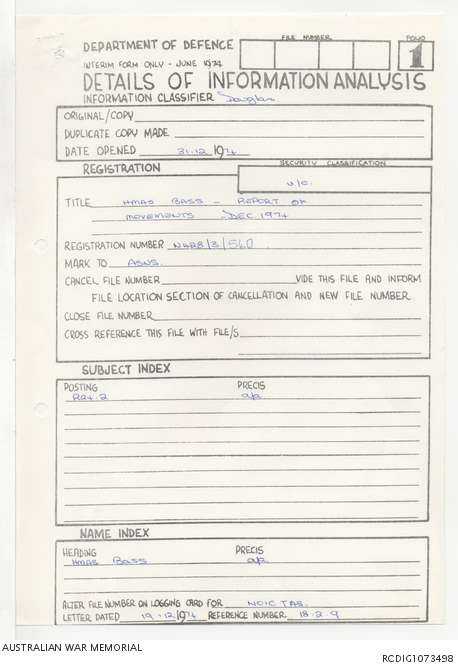 DEPARTMENT OF DEFENCE
FILE NUMBER
FOLIO
1
INTERIM FORM ONLY - JUNE 1974
DETAILS OF INFORMATION ANALYSIS
INFORMATION CLASSIFIER Douglas
ORIGINAL/COPY
DUPLICATE COPY MADE
DATE OPENED 31-12/1974
REGISTRATION
SECURITY CLASSIFICATION
u/c.
TITLE HMAS BASS - REPORT OF
MOVEMENTS - DEC. 1974
REGISTRATION NUMBER N428/3/560
MARK TO ASNS.
CANCEL FILE NUMBER VIDE THIS FILE AND INFORM
FILE LOCATION SECTION OF CANCELLATION AND NEW FILE NUMBER
CLOSE FILE NUMBER
CROSS REFERENCE THIS FILE WITH FILE/S
SUBJECT INDEX
POSTING PRECIS
a/a
NAME INDEX
HEADING PRECIS
HMAS Bass a/a
ALTER FILE NUMBER ON LOGGING CARD FOR NOIC TAS.
LETTER DATED 19-12/1974 REFERENCE NUMBER 18-2-9
AUSTRALIAN WAR MEMORIAL
RCDIG1073498